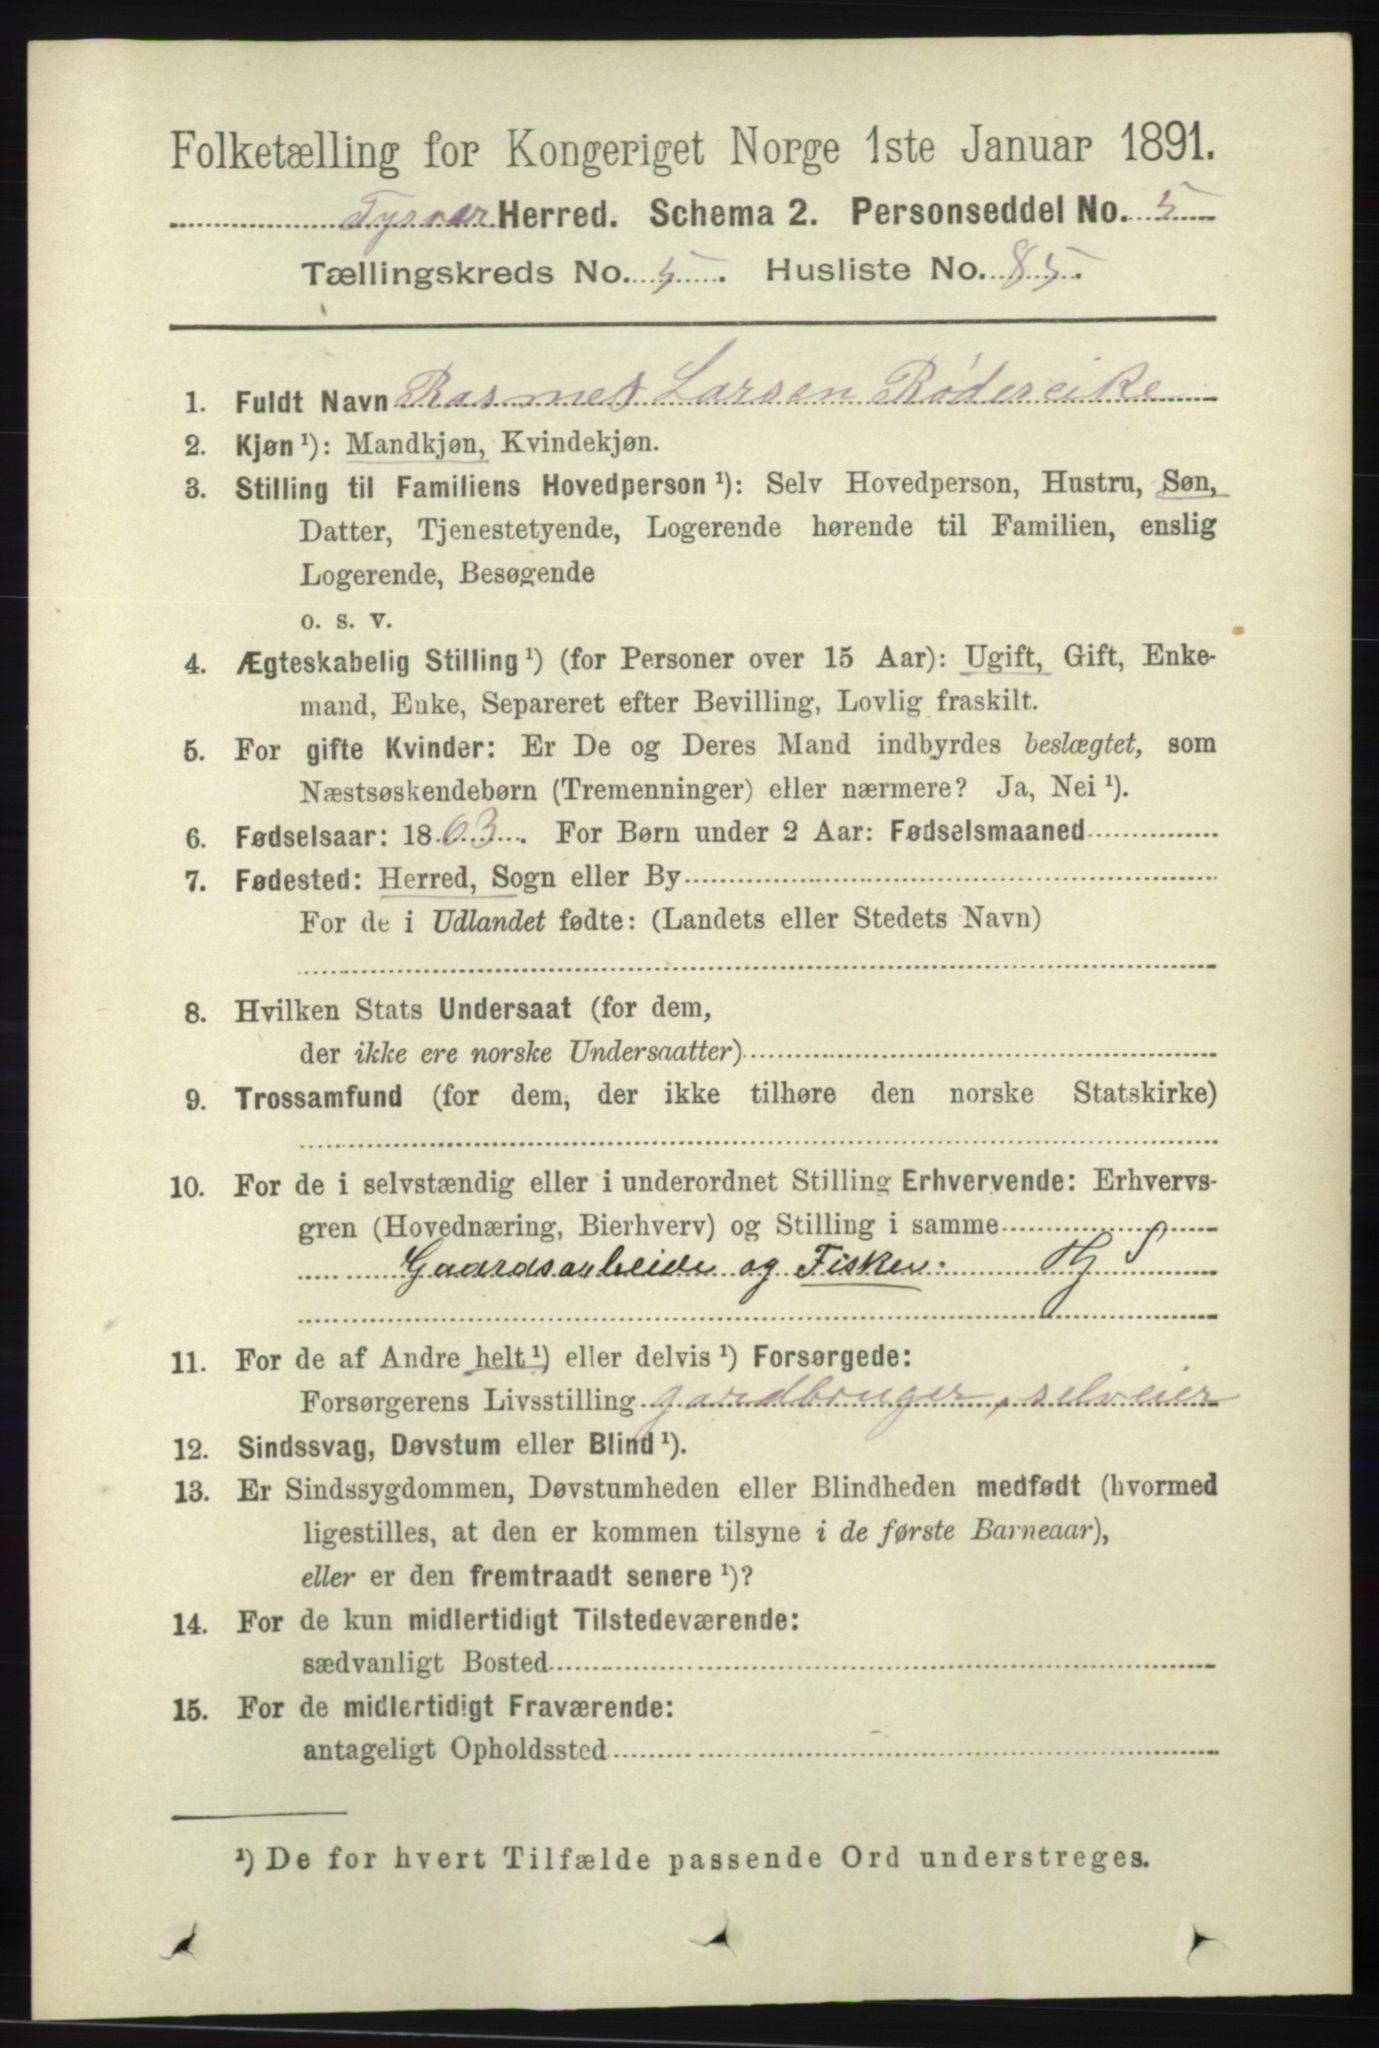 Folketælling for Kongeriget Norge 1ste Januar 1891.
Tysvær Herred. Schema 2. Personseddel No. 5
Tællingskreds No. 5. Husliste No. 85.
1. Fuldt Navn Rasmus Larsen Rödereike
2. Kjøn ¹): Mandkjøn, Kvindekjøn.
3. Stilling til Familiens Hovedperson ¹): Selv Hovedperson, Hustru, Søn,
Datter, Tjenestetyende, Logerende hørende til Familien, enslig
Logerende, Besøgende
o. s. v.
4. Ægteskabelig Stilling ¹) (for Personer over 15 Aar): Ugift, Gift, Enke-
mand, Enke, Separeret efter Bevilling, Lovlig fraskilt.
5. For gifte Kvinder: Er De og Deres Mand indbyrdes beslægtet, som
Næstsøskendebørn (Tremenninger) eller nærmere? Ja, Nei ¹).
6. Fødselsaar: 1863. For Børn under 2 Aar: Fødselsmaaned
7. Fødested: Herred, Sogn eller By
For de i Udlandet fødte: (Landets eller Stedets Navn)
8. Hvilken Stats Undersaat (for dem,
der ikke ere norske Undersaatter)
9. Trossamfund (for dem, der ikke tilhøre den norske Statskirke)
10. For de i selvstændig eller i underordnet Stilling Erhvervende: Erhvervs-
gren (Hovednæring, Bierhverv) og Stilling i samme
Gaardsarbeide og Fisker.
11. For de af Andre helt ¹) eller delvis ¹) Forsørgede:
Forsørgerens Livsstilling gardbruger, selveier
12. Sindssvag, Døvstum eller Blind ¹).
13. Er Sindssygdommen, Døvstumheden eller Blindheden medfødt (hvormed
ligestilles, at den er kommen tilsyne i de første Barneaar),
eller er den fremtraadt senere ¹)?
14. For de kun midlertidigt Tilstedeværende:
sædvanligt Bosted
15. For de midlertidigt Fraværende:
antageligt Opholdssted
¹) De for hvert Tilfælde passende Ord understreges.